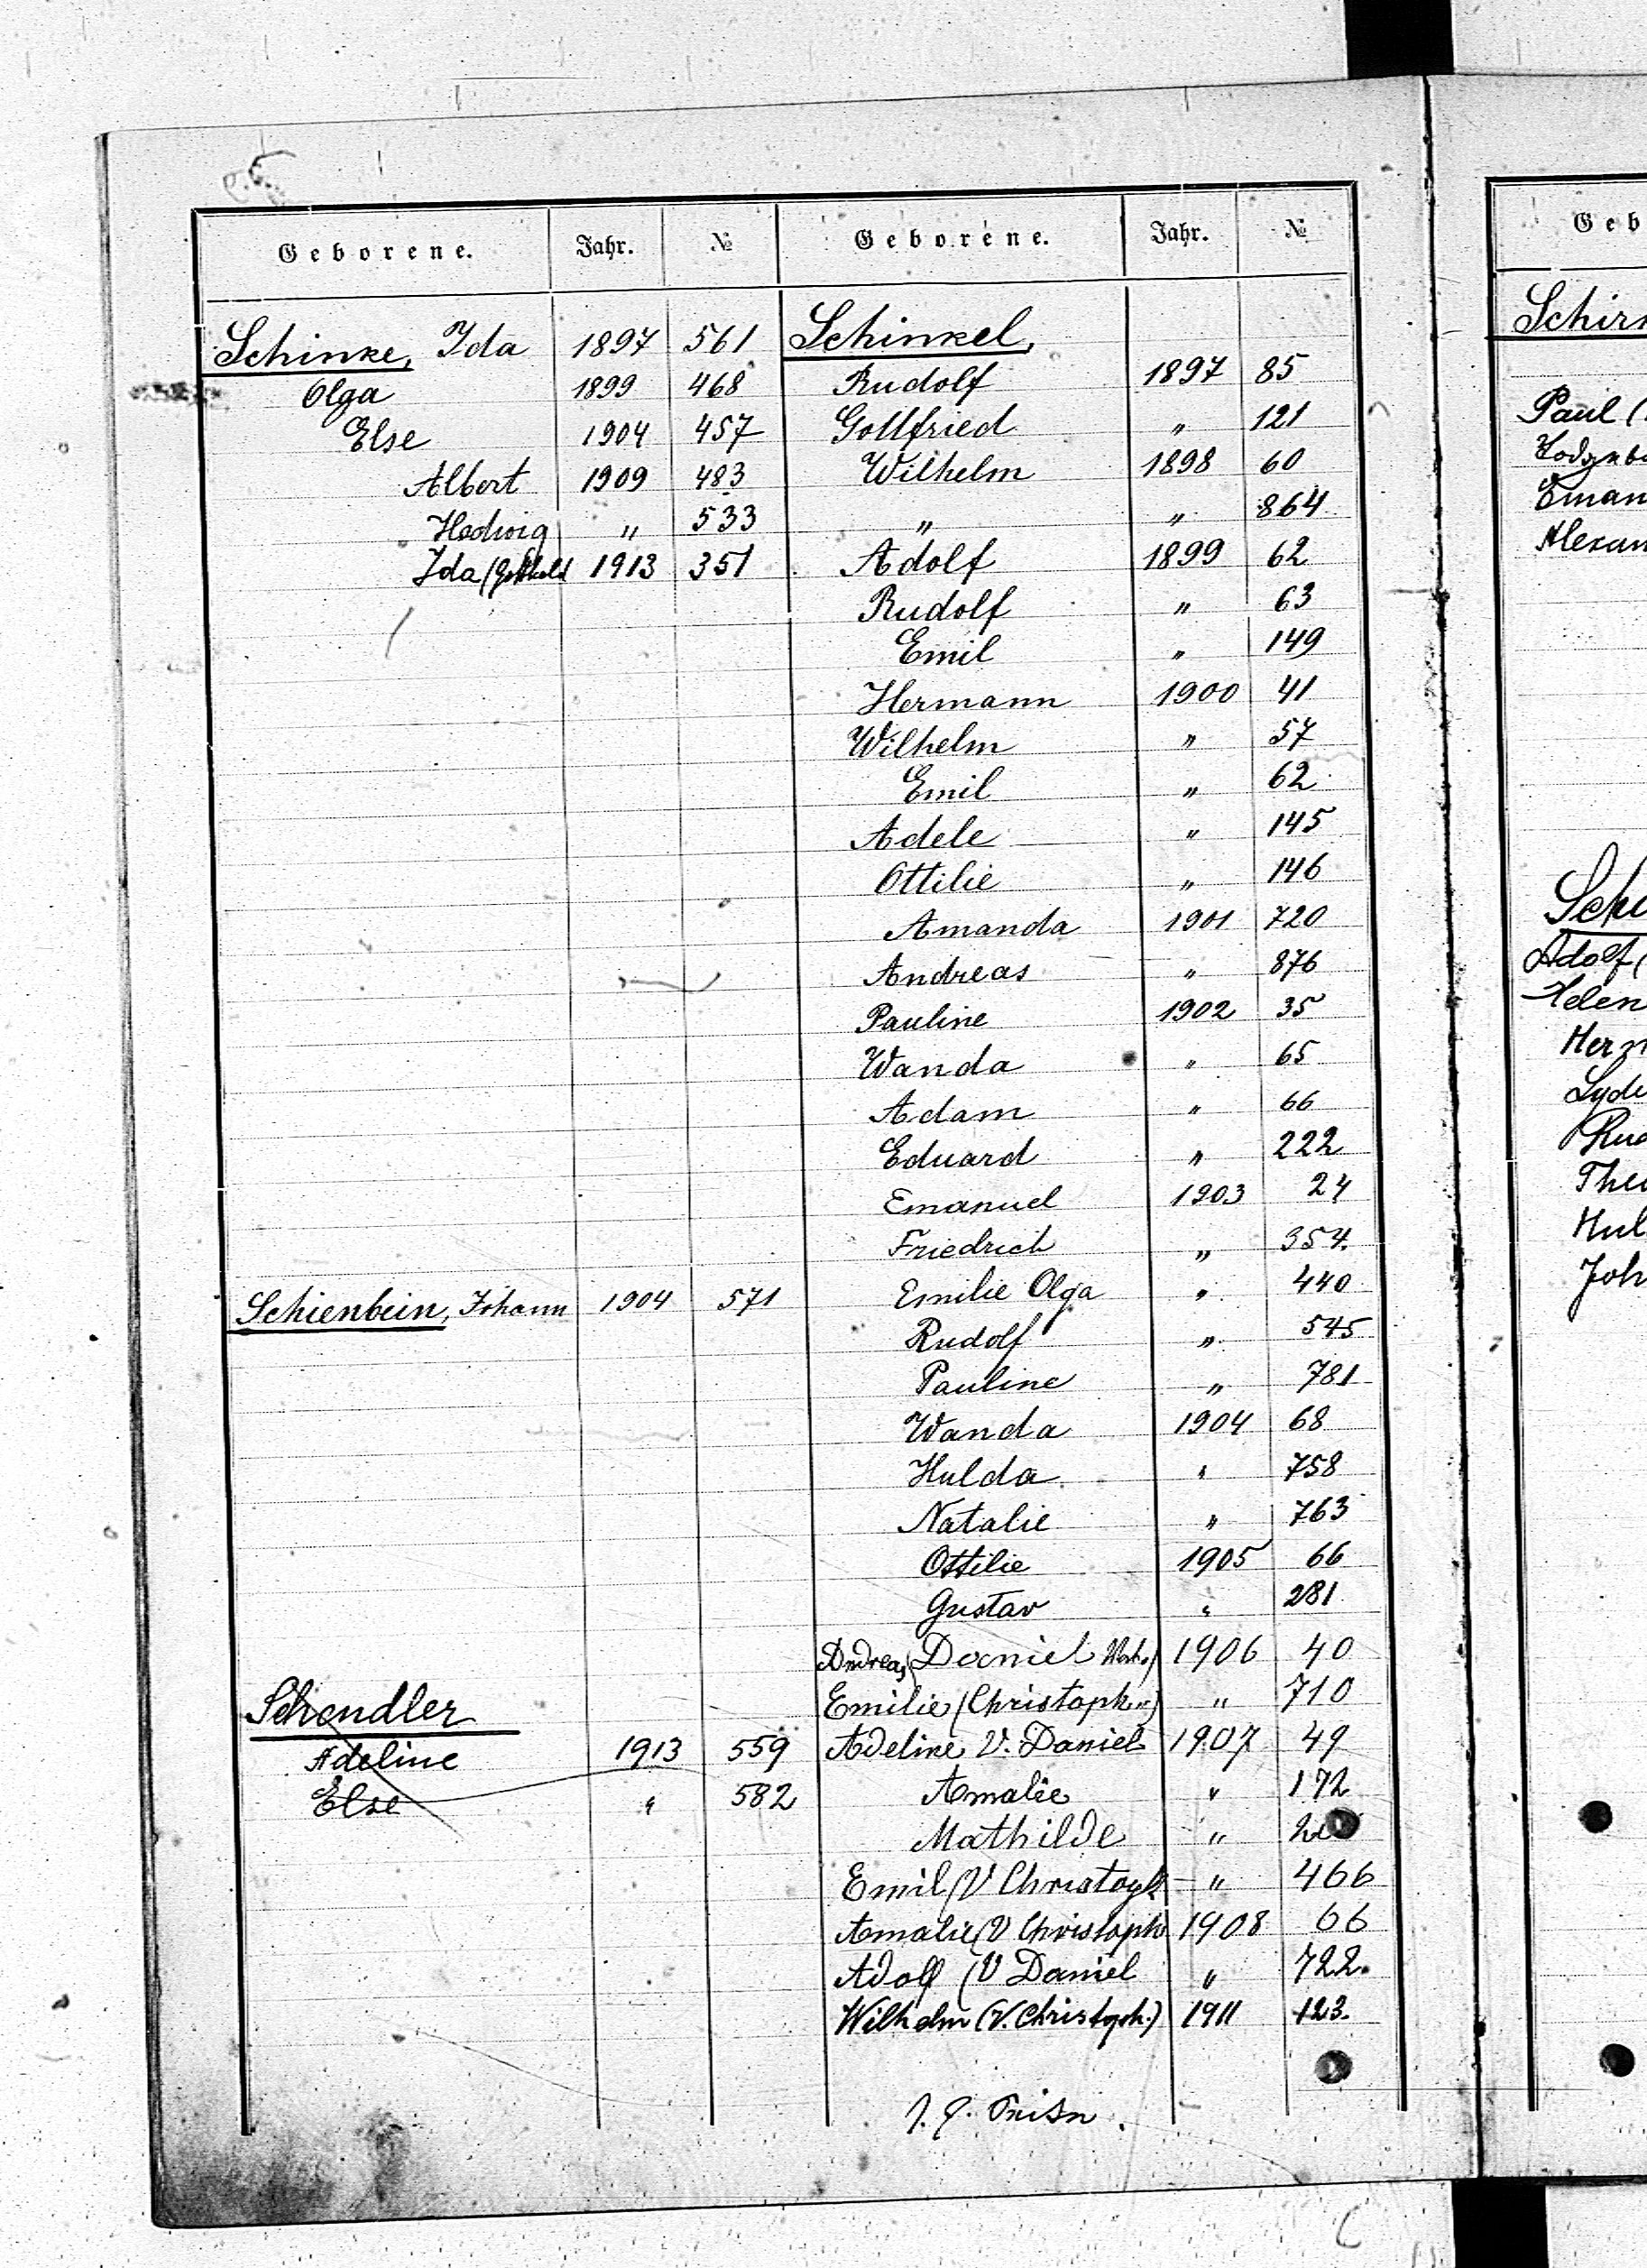 Geborene. Jahr. №
Schinke, Ida 1897 561
Olga 1899 468
Else 1904 457
Albert 1909 483
Hedwig " 533
Ida (Gotthold 1913 351
Schienbein, Johann 1904 571
Schendler
Adeline 1913 559
Else " 582
Geborene. Jahr. №
Schinkel,
Rudolf 1897 85
Gottfried " 121
Wilhelm 1898 60
" " 864
Adolf 1899 62
Rudolf " 63
Emil " 149
Hermann 1900 41
Wilhelm " 57
Emil " 62
Adele " 145
Ottilie " 146
Amanda 1901 720
Andreas " 876
Pauline 1902 35
Wanda " 65
Adam " 66
Eduard " 222
Emanuel 1903 24
Friedrich " 354.
Emilie Olga " 440
Rudolf " 545
Pauline " 781
Wanda 1904 68
Hulda " 758
Natalie " 763
Ottilie 1905 66
Gustav " 281
Andreas Daniel 1906 40
Emilie (Christoph ") " 710
Adeline V. Daniel 1907 49
Amalie " 172
Mathilde "
Emil (V Christoph " 466
Amalie (V Christoph 1908 66
Adolf (V Daniel " 722.
Wilhelm (V. Christoph.) 1911 123.
Geb
Schin
Paul (
Eman
Alexan
Sch
Adolf (
Helen
Herm
Lydi
Rud
Theo
Hul
Joh